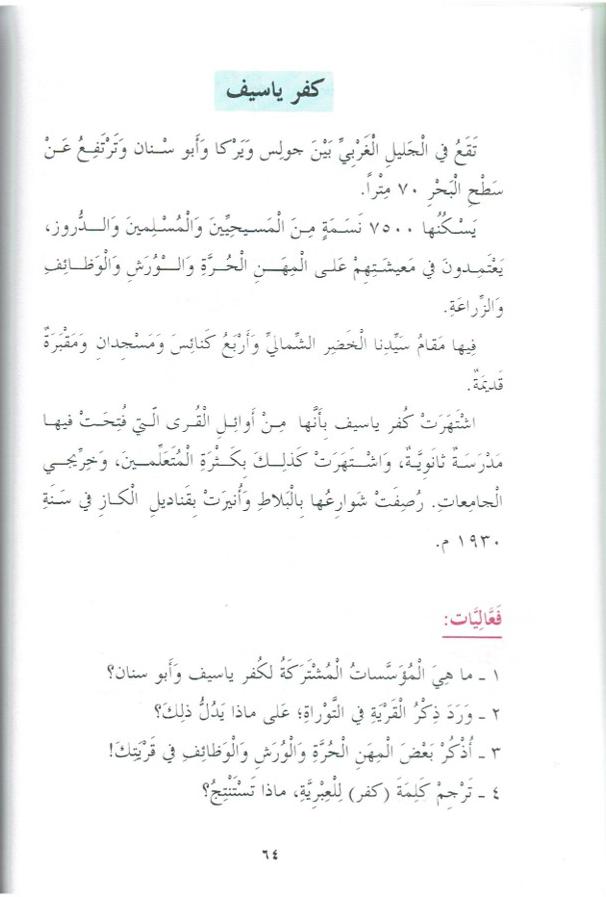 كفر ياسيف
تَقَعُ في الْجَليلِ الْغَرْبِيِّ بَيْنَ جولِس وَيَرْكا وَأَبو سْنان وَتَرْتَفِعُ عَنْ
سَطْحِ الْبَحْرِ ٧٠ مِتْراً.
يَسْكُنُها ٧٥٠٠ نَسَمَةٍ مِنَ الْمَسيحِيِّينَ وَالْمُسْلِمينَ وَالدُّروز،
يَعْتَمِدونَ في مَعيشَتِهِمْ عَلى الْمِهَنِ الْحُرَّةِ وَالْوُرَشِ وَالْوَظائِفِ
وَالزِّراعَةِ.
فيها مَقامُ سَيِّدِنا الْخَضِر الشَّماليِّ وَأَرْبَعُ كَنائِسَ وَمَسْجِدانِ وَمَقْبَرَةٌ
قَديمَةٌ.
اشْتَهَرَتْ كُفر ياسيف بِأَنَّها مِنْ أَوائِلِ الْقُرى الَّتي فُتِحَتْ فيها
مَدْرَسَةٌ ثانَوِيَّةٌ، وَاشْتَهَرَتْ كَذلِكَ بِكَثْرَةِ الْمُتَعَلِّمينَ، وَخِرِّيجي
الْجامِعات. رُصِفَتْ شَوارِعُها بِالْبَلاطِ وَأُنيرَتْ بِقَناديلِ الْكاز في سَنَةِ
١٩٣٠ م.
فَعَّالِيَّات:
١ ـ ما هِيَ الْمُؤَسَّساتُ الْمُشْتَرَكَةُ لكُفر ياسيف وَأَبو سنان؟
٢ ـ وَرَدَ ذِكْرُ الْقَرْيَةِ في التَّوْراةِ؛ عَلى ماذا يَدُلُّ ذلِكَ؟
٣ ـ أُذْكُرْ بَعْضَ الْمِهَنِ الْحُرَّةِ وَالْوُرَشِ وَالْوَظائِفِ في قَرْيَتِكَ!
٤ ـ تَرْجِمْ كَلِمَةَ (كفر) لِلْعِبْرِيَّةِ، ماذا تَسْتَنْتِجُ؟
٦٤